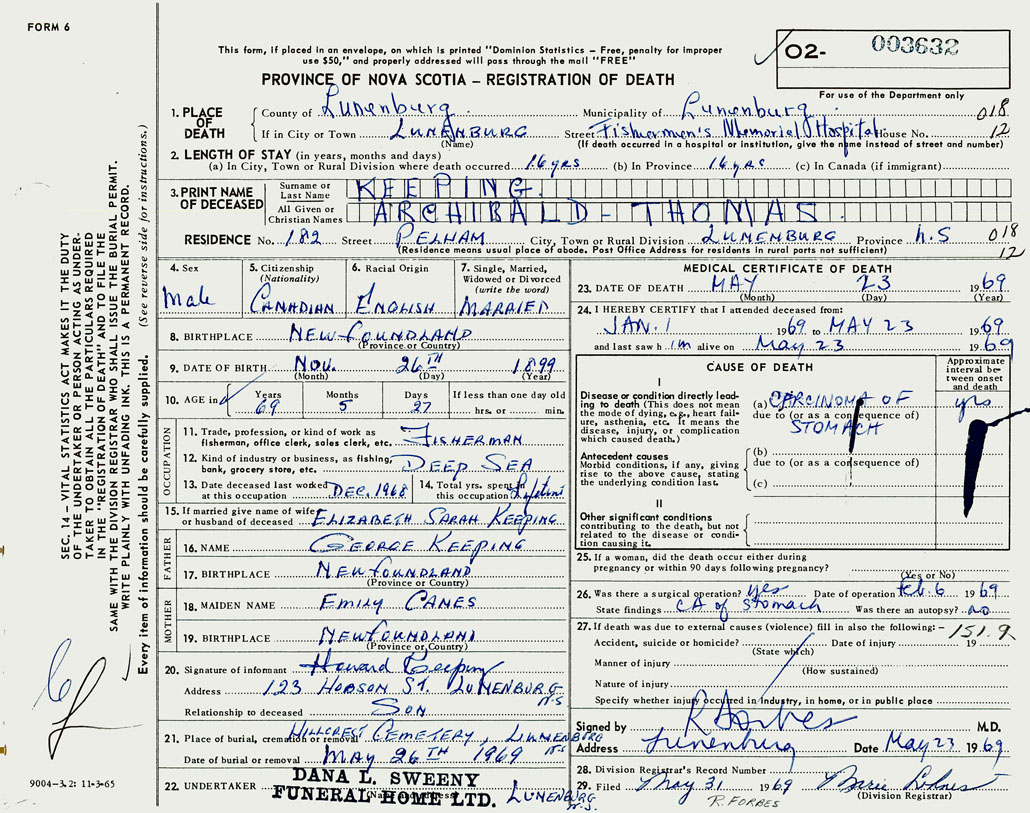 FORM 6
This form, if placed in an envelope, on which is printed "Dominion Statistics – Free, penalty for improper
use $50," and properly addressed will pass through the mail "FREE"
O2- 003632
PROVINCE OF NOVA SCOTIA – REGISTRATION OF DEATH
For use of the Department only
1. PLACE OF DEATH
County of Lunenburg Municipality of Lunenburg 018
If in City or Town LUNENBURG Street Fishermen's Memorial Hospital House No. 12
(Name) (If death occurred in a hospital or institution, give the name instead of street and number)
2. LENGTH OF STAY (in years, months and days)
(a) In City, Town or Rural Division where death occurred 16 yrs (b) In Province 16 yrs (c) In Canada (if immigrant)
3. PRINT NAME OF DECEASED
Surname or Last Name KEEPING
All Given or Christian Names ARCHIBALD - THOMAS
RESIDENCE No. 182 Street PELHAM City, Town or Rural Division LUNENBURG Province N.S 018
(Residence means usual place of abode. Post Office Address for residents in rural parts not sufficient) 12
4. Sex Male
5. Citizenship (Nationality) CANADIAN
6. Racial Origin ENGLISH
7. Single, Married, Widowed or Divorced (write the word) MARRIED
8. BIRTHPLACE NEWFOUNDLAND
(Province or Country)
9. DATE OF BIRTH Nov. 26TH 1899
(Month) (Day) (Year)
10. AGE in Years 69 Months 5 Days 27 If less than one day old
hrs. or min.
OCCUPATION
11. Trade, profession or kind of work as
fisherman, office clerk, sales clerk, etc. FISHERMAN
12. Kind of industry or business, as fishing,
bank, grocery store, etc. DEEP SEA
13. Date deceased last worked
at this occupation DEC. 1968
14. Total yrs. spent in
this occupation Lifetime
15. If married give name of wife
or husband of deceased ELIZABETH SARAH KEEPING
FATHER
16. NAME GEORGE KEEPING
17. BIRTHPLACE NEWFOUNDLAND
(Province or Country)
MOTHER
18. MAIDEN NAME EMILY CANES
19. BIRTHPLACE NEWFOUNDLAND
(Province or Country)
20. Signature of informant Howard Keeping
Address 123 HOBSON ST. LUNENBURG
N.S
Relationship to deceased SON
21. Place of burial, cremation or removal HILLCREST CEMETERY, LUNENBURG
N.S
Date of burial or removal MAY 26TH 1969
22. UNDERTAKER DANA L. SWEENY
FUNERAL HOME LTD. LUNENBURG
N.S.
MEDICAL CERTIFICATE OF DEATH
23. DATE OF DEATH MAY 23 1969
(Month) (Day) (Year)
24. I HEREBY CERTIFY that I attended deceased from:
JAN. 1 1969 to MAY 23 1969
and last saw him alive on May 23 1969
CAUSE OF DEATH
Approximate interval between onset and death
I
Disease or condition directly leading
to death (This does not mean
the mode of dying, e.g., heart failure,
asthenia, etc. It means the
disease, injury, or complication
which caused death.)
(a) CARCINOMA OF yrs
due to (or as a consequence of)
STOMACH
Antecedent causes
Morbid conditions, if any, giving
rise to the above cause, stating
the underlying condition last.
(b)
due to (or as a consequence of)
(c)
II
Other significant conditions
contributing to the death, but not
related to the disease or condition
causing it.
25. If a woman, did the death occur either during
pregnancy or within 90 days following pregnancy?
(Yes or No)
26. Was there a surgical operation? yes Date of operation Feb. 6 1969
State findings CA of stomach Was there an autopsy? no
27. If death was due to external causes (violence) fill in also the following: – 151.9
Accident, suicide or homicide? Date of injury 19
(State which)
Manner of injury
(How sustained)
Nature of injury
Specify whether injury occurred in Industry, in home, or in public place
Signed by R Forbes M.D.
Address Lunenburg Date May 23 1969
28. Division Registrar's Record Number
29. Filed May 31 1969
R. FORBES (Division Registrar)
SEC. 14 – VITAL STATISTICS ACT MAKES IT THE DUTY
OF THE UNDERTAKER OR PERSON ACTING AS UNDER-
TAKER TO OBTAIN ALL THE PARTICULARS REQUIRED
IN THE "REGISTRATION OF DEATH" AND TO FILE THE
SAME WITH THE DIVISION REGISTRAR WHO SHALL ISSUE THE BURIAL PERMIT.
WRITE PLAINLY WITH UNFADING INK. THIS IS A PERMANENT RECORD.
Every item of information should be carefully supplied. (See reverse side for instructions.)
9004-3.2: 11-3-65